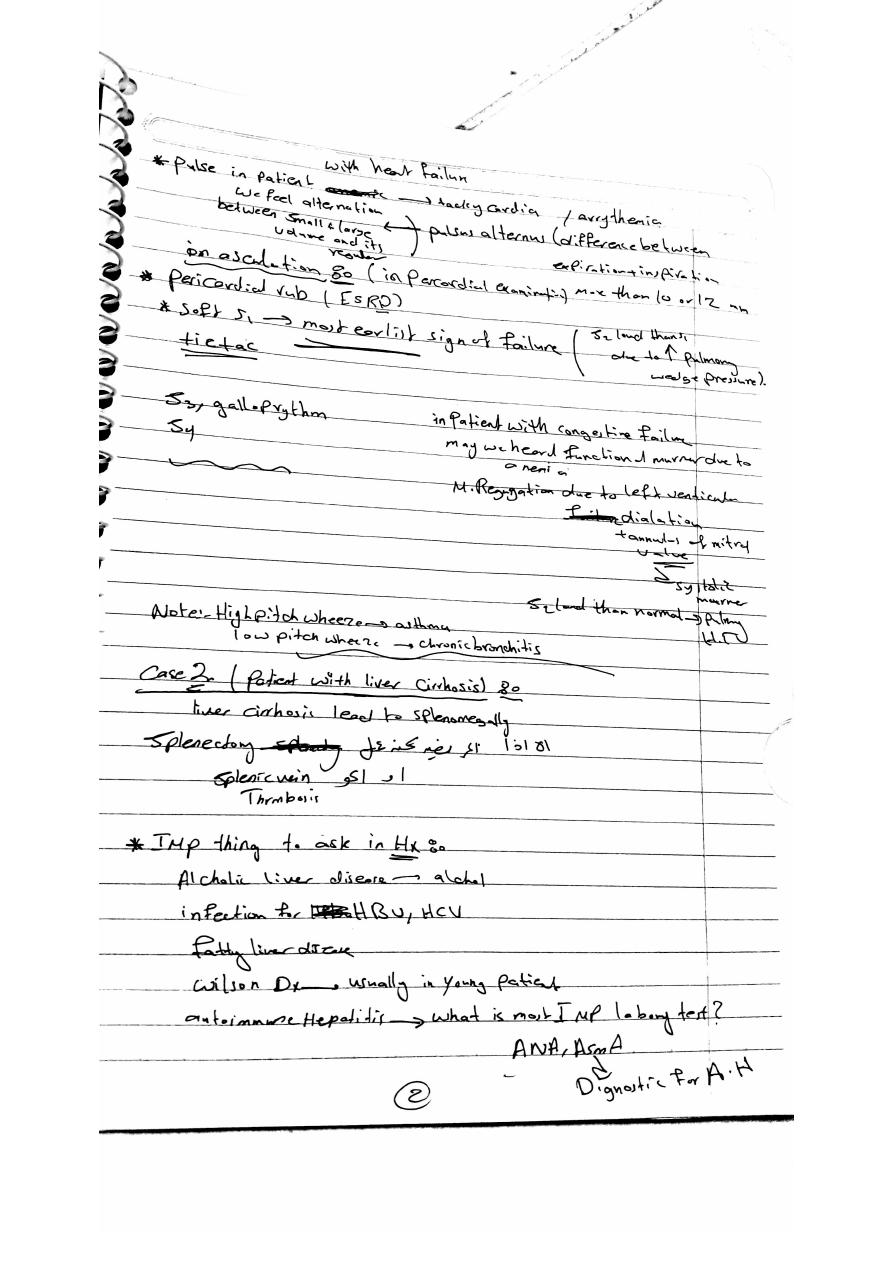 with heart failure
* Pulse in patient → tachycardia / arrythemia
we feel alternation
between small & large
volume and its
regular
pulsus alternus (difference between
expiration + inspiration
more than 10 or 12 mm
on asculation :- (in percordial examination)
* Pericordial rub (ESRD)
* Soft S1 → most earlist sign of failure
tictac
( S2 loud than S1
due to ↑ pulmonary
wedge pressure).
S3, gallop rythm
S4
in patient with congestive failure
may we heard functional murmer due to
anemia
M. Regugation due to left venticular
dialation
+ annulus of mitral
valve
systolic
murmer
S2 loud than normal → pulmy
H.T
Note:- High pitch wheeze → asthma
low pitch wheeze → chronic bronchitis
Case 2. (Patient with liver Cirrhosis) :-
liver cirrhosis lead to splenomegally
الا اذا المريض كنه عمل Splenectomy
او اكو Splenic vein
Thrmbosis
* IMP thing to ask in Hx :-
Alcholic liver disease → alchol
infection for HBV, HCV
fatty liver disease
Wilson Dx → usually in young patient
autoimmune Hepatitis → what is most IMP labory test?
ANA, ASmA
Dignostic for A.H
2